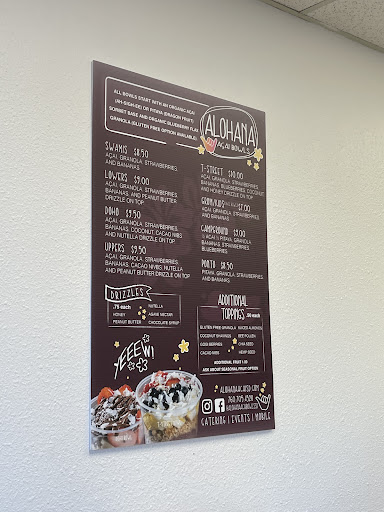 ALL BOWLS START WITH AN ORGANIC ACAI
(AH-SIGH-EE) OR PITAYA (DRAGON FRUIT)
SORBET BASE AND ORGANIC BLUEBERRY FLAX
GRANOLA (GLUTEN FREE OPTION AVAILABLE)
ALOHANA
AÇAÍ BOWLS
SWAMIS $8.50
ACAI, GRANOLA, STRAWBERRIES,
AND BANANAS
LOWERS $9.00
ACAI, GRANOLA, STRAWBERRIES,
BANANAS, AND PEANUT BUTTER
DRIZZLE ON TOP
DOHO $9.50
ACAI, GRANOLA, STRAWBERRIES,
BANANAS, COCONUT, CACAO NIBS
AND NUTELLA DRIZZLE ON TOP
UPPERS $9.50
ACAI, GRANOLA, STRAWBERRIES,
BANANAS, CACAO NIBS, NUTELLA
AND PEANUT BUTTER DRIZZLE ON TOP
T-STREET $10.00
ACAI, GRANOLA, STRAWBERRIES,
BANANAS, BLUEBERRIES, COCONUT
AND HONEY DRIZZLE ON TOP
$7.00
ACAI, GRANOLA, STRAWBERRIES,
AND BANANAS
CAMPGROUND $9.00
½ ACAI ½ PITAYA, GRANOLA,
BANANAS, STRAWBERRIES
BLUEBERRIES
PONTO $8.50
PITAYA, GRANOLA, STRAWBERRIES,
AND BANANAS
DRIZZLES
.75 each
HONEY
PEANUT BUTTER
NUTELLA
AGAVE NECTAR
CHOCOLATE SYRUP
ADDITIONAL
TOPPINGS .50 each
GLUTEN FREE GRANOLA
COCONUT SHAVINGS
GOJI BERRIES
CACAO NIBS
SLICED ALMONDS
BEE POLLEN
CHIA SEED
HEMP SEED
ADDITIONAL FRUIT 1.00
ASK ABOUT SEASONAL FRUIT OPTION
YEEEW!
ALOHANAACAISD.COM
CATERING | EVENTS | MOBILE